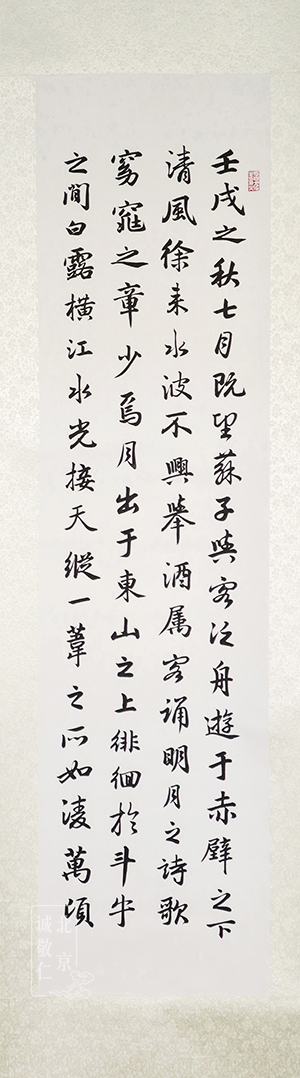 壬戌之秋七月既望蘇子與客泛舟遊于赤壁之下
清風徐来水波不興舉酒属客誦明月之詩歌
窈窕之章少焉月出于東山之上徘徊於斗牛
之間白露橫江水光接天縱一葦之所如凌萬頃
北京
诚敬仁